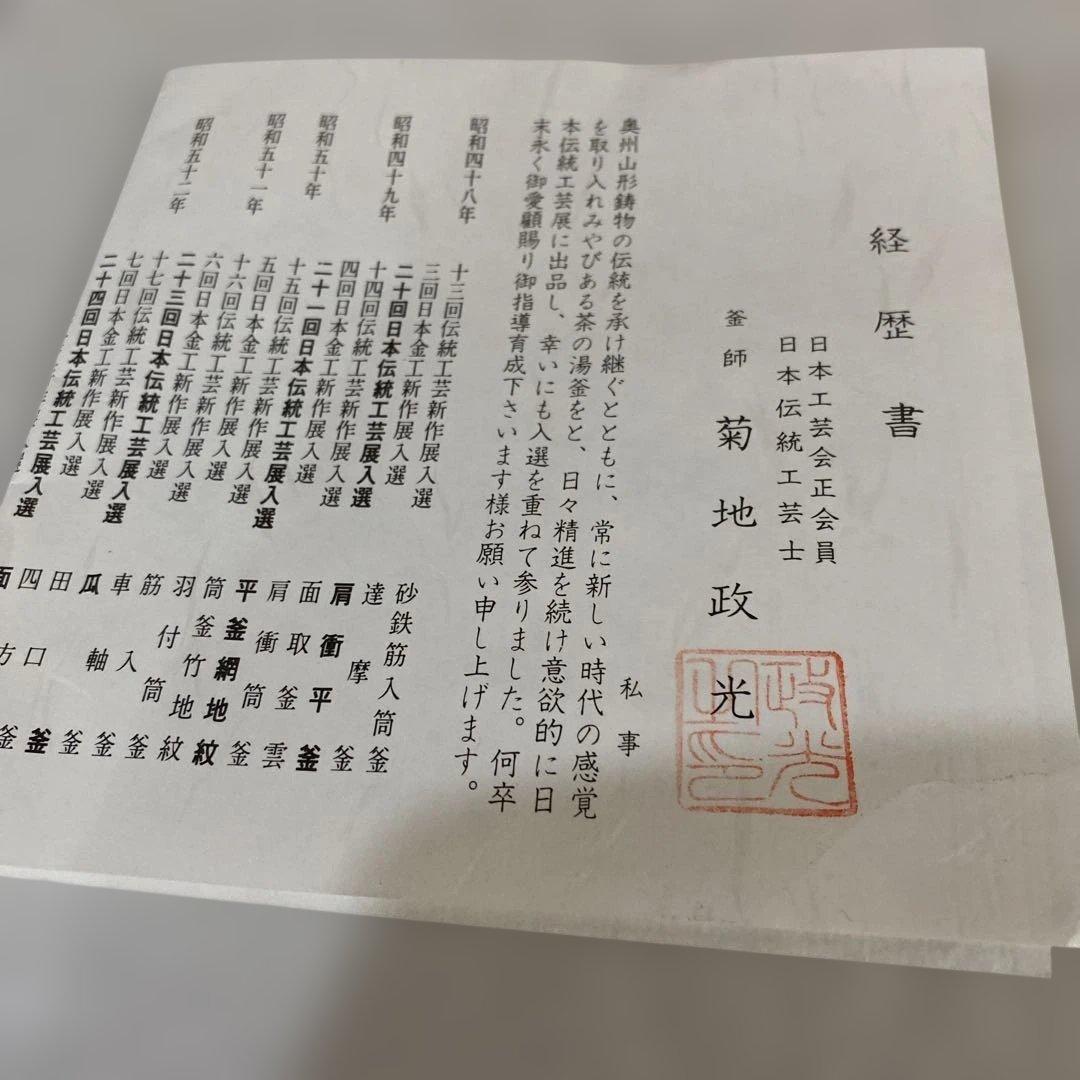 経歴書
日本工芸会正会員
日本伝統工芸士
釜師 菊地政光
政光
私事
奥州山形鋳物の伝統を承け継ぐとともに、常に新しい時代の感覚
を取り入れみやびある茶の湯釜をと、日々精進を続け意欲的に日
本伝統工芸展に出品し、幸いにも入選を重ねて参りました。何卒
末永く御愛顧賜り御指導育成下さいます様お願い申し上げます。
昭和四十八年 十三回伝統工芸新作展入選 砂鉄筋入筒釜
三回日本金工新作展入選 達摩釜
二十回日本伝統工芸展入選 肩衝平釜
昭和四十九年 十四回伝統工芸新作展入選 面取釜雲
四回日本金工新作展入選 肩衝筒釜
二十一回日本伝統工芸展入選 平釜網地紋
昭和五十年 十五回伝統工芸新作展入選 筒釜竹地紋
五回日本金工新作展入選 羽付筒釜
昭和五十一年 十六回伝統工芸新作展入選 筋入釜
六回日本金工新作展入選 車軸釜
二十三回日本伝統工芸展入選 瓜釜
昭和五十二年 十七回伝統工芸新作展入選 田口釜
七回日本金工新作展入選 四方釜
二十四回日本伝統工芸展入選 面